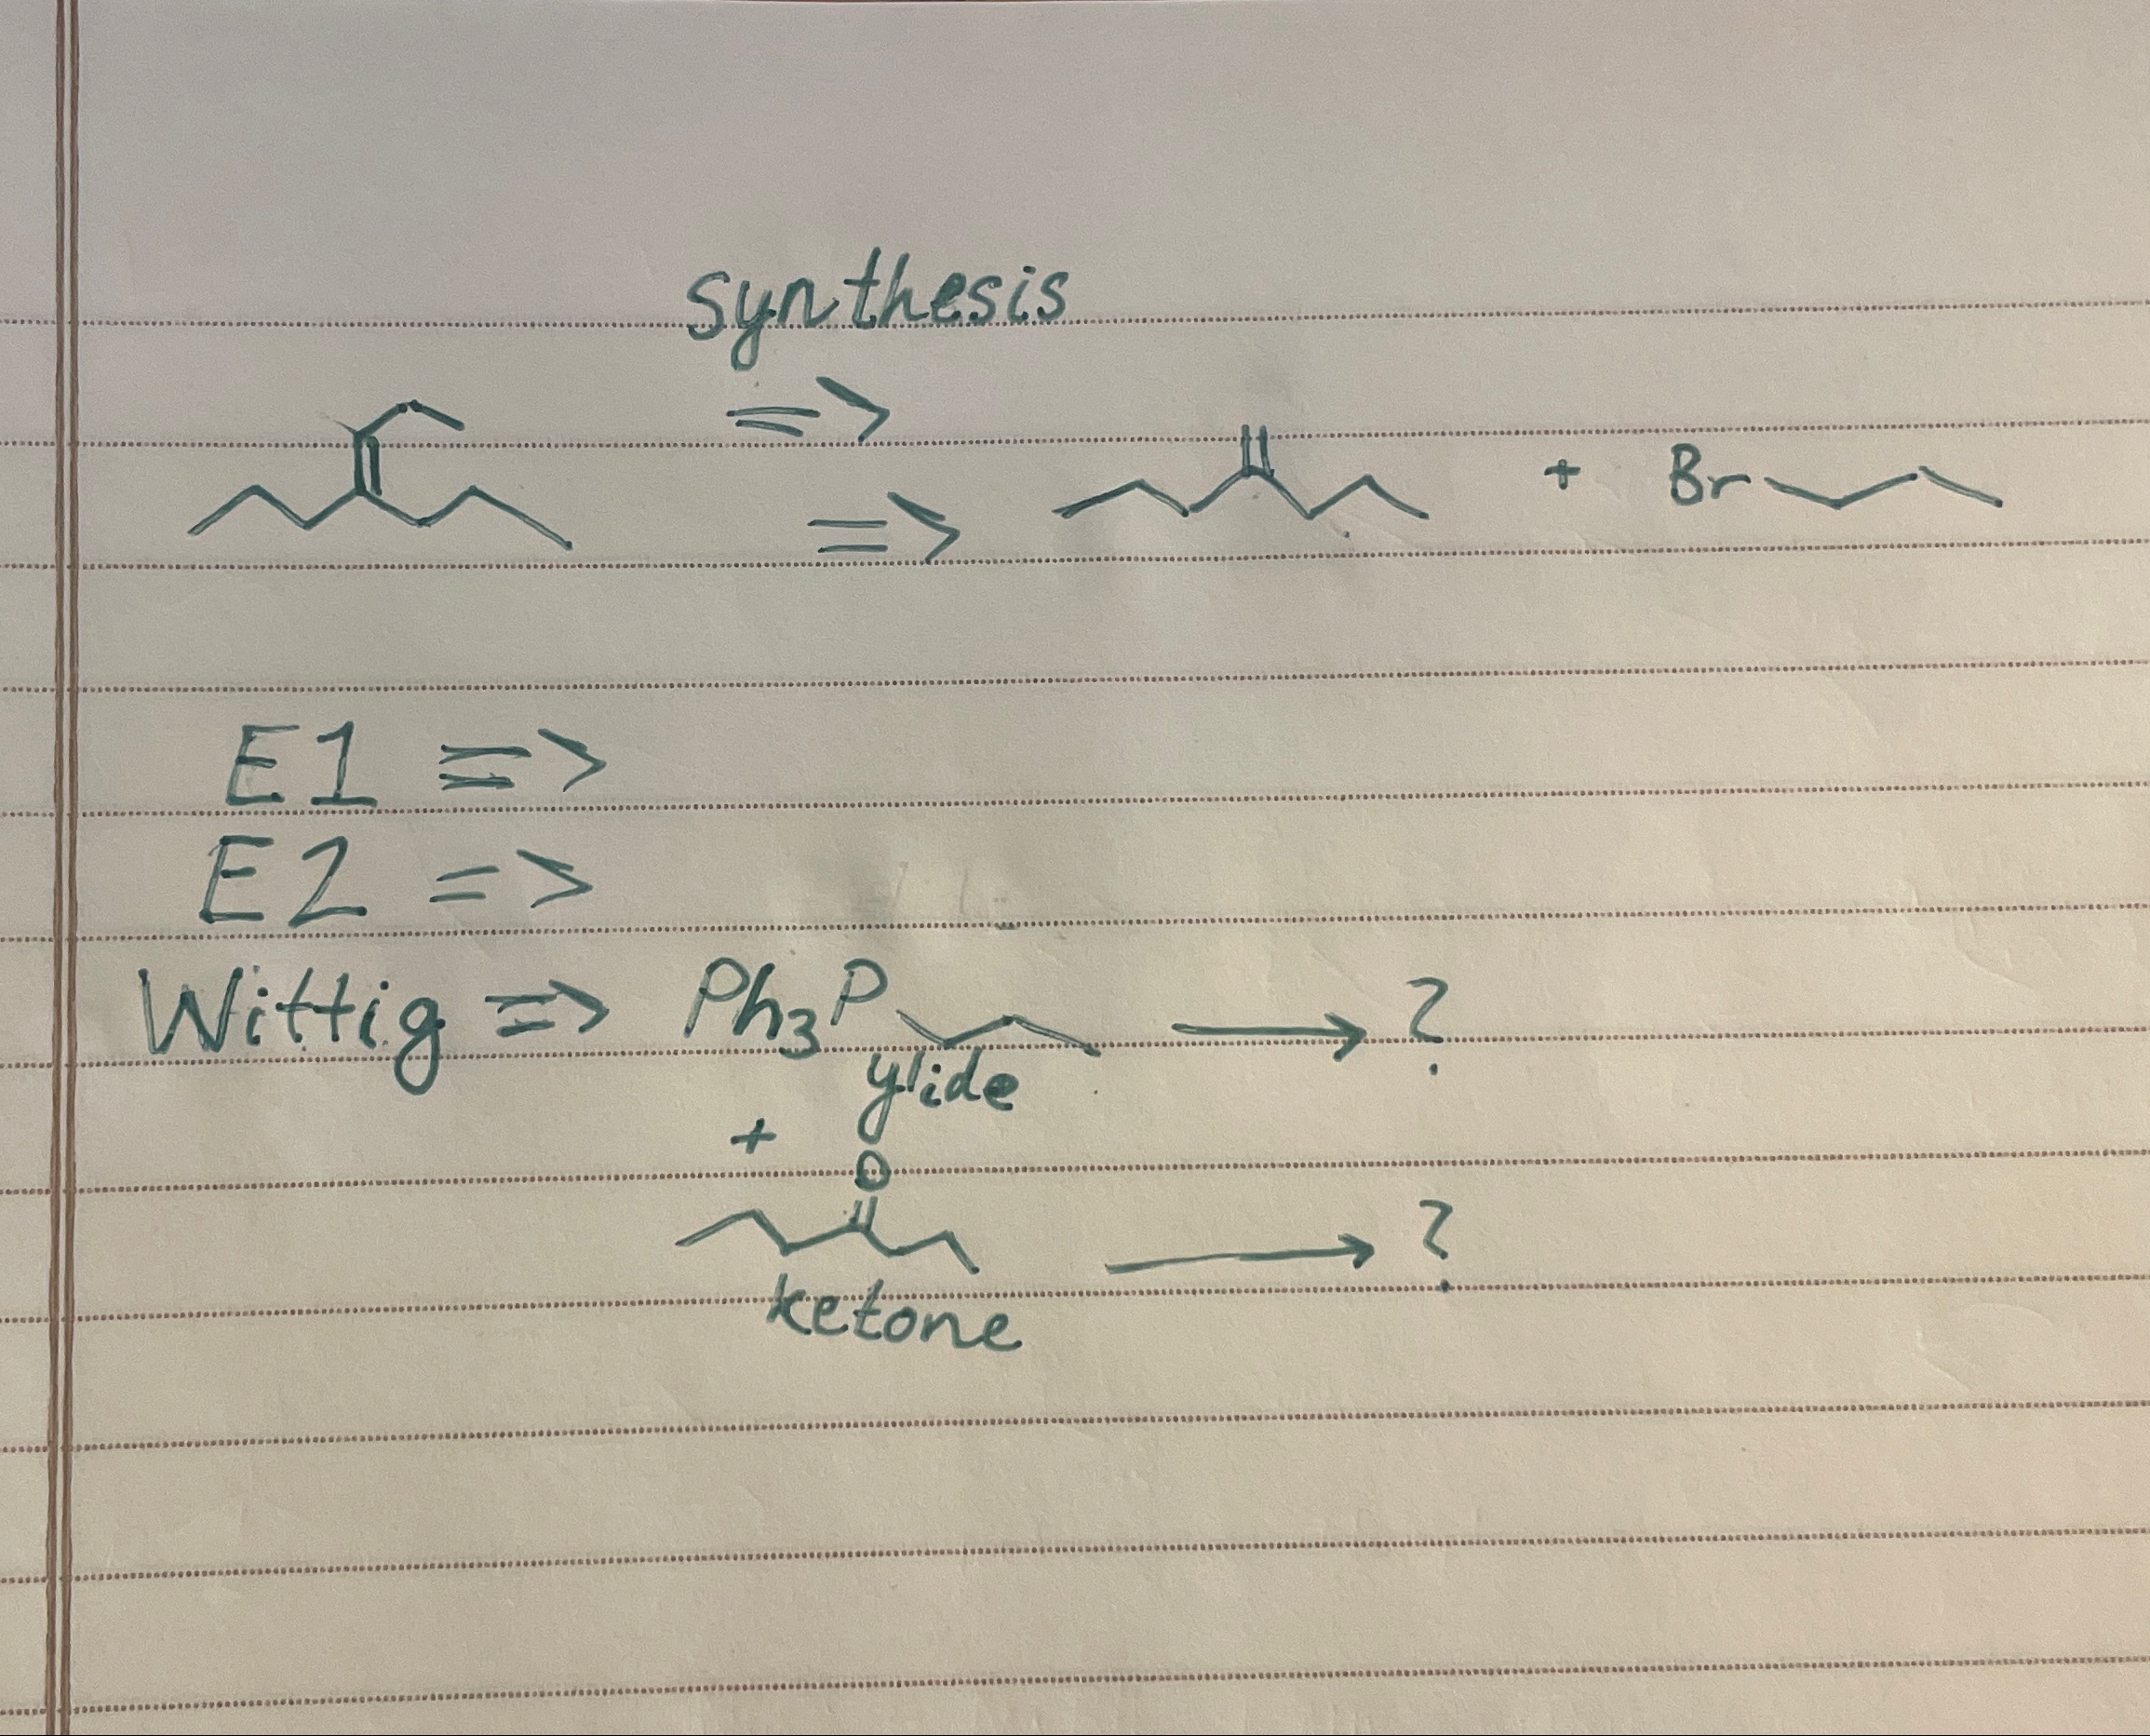 synthesis
=>
=> + Br
E1 =>
E2 =>
Wittig => Ph₃P → ?
ylide
+
O
→ ?
ketone